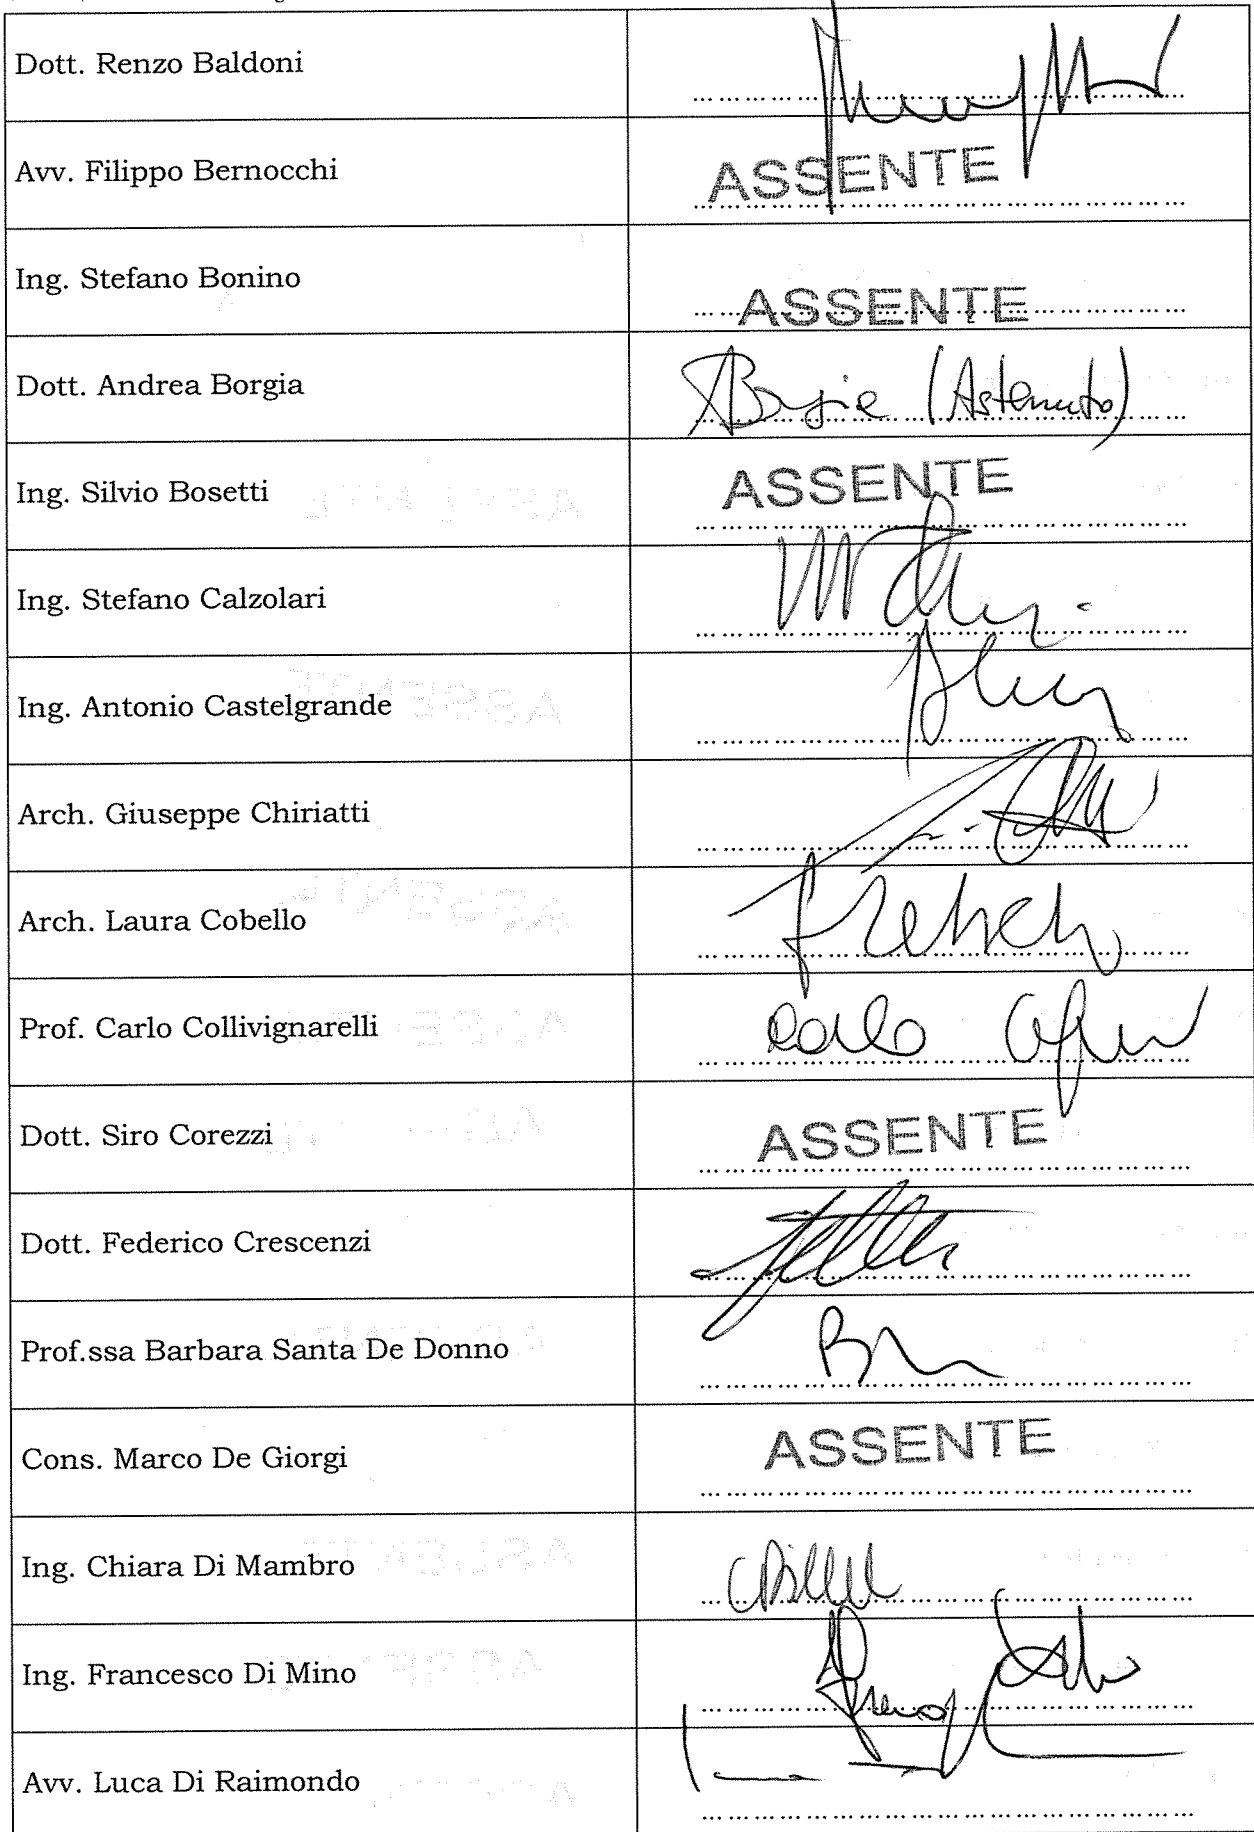 Dott. Renzo Baldoni
Avv. Filippo Bernocchi ASSENTE
Ing. Stefano Bonino ASSENTE
Dott. Andrea Borgia ABorgia (Astenuto)
Ing. Silvio Bosetti ASSENTE
Ing. Stefano Calzolari
Ing. Antonio Castelgrande
Arch. Giuseppe Chiriatti
Arch. Laura Cobello
Prof. Carlo Collivignarelli Carlo
Dott. Siro Corezzi ASSENTE
Dott. Federico Crescenzi
Prof.ssa Barbara Santa De Donno
Cons. Marco De Giorgi ASSENTE
Ing. Chiara Di Mambro
Ing. Francesco Di Mino
Avv. Luca Di Raimondo